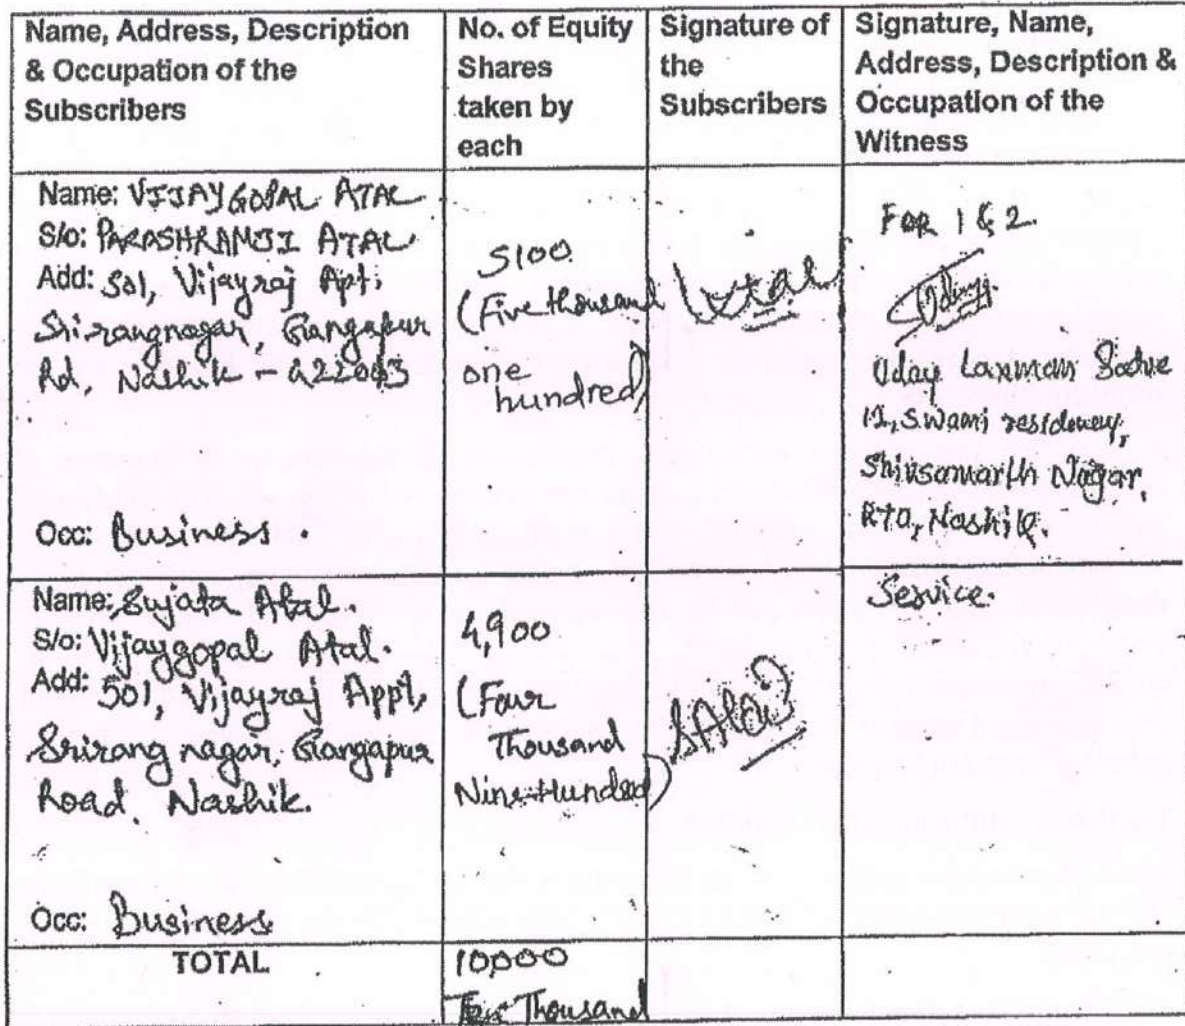 Name, Address, Description
& Occupation of the
Subscribers
No. of Equity
Shares
taken by
each
Signature of
the
Subscribers
Signature, Name,
Address, Description &
Occupation of the
Witness
Name: VIJAYGOPAL ATAL
S/o: PARASHRAMJI ATAL
Add: 501, Vijayraj Apt.
Shrirangnagar, Gangapur
Rd, Nashik - 422013
Occ: Business.
5100
(Five thousand
one
hundred)
FOR 1 & 2
Uday Laxman
12, Swami residency,
Shivsamarth Nagar,
RTO, Nashik.
Name: Sujata Atal.
S/o: Vijaygopal Atal.
Add: 501, Vijayraj Appt,
Srirang nagar, Gangapur
Road, Nashik.
Occ: Business
4,900
(Four
Thousand
Nine Hundred)
SAtal
Service.
TOTAL
10,000
Ten Thousand